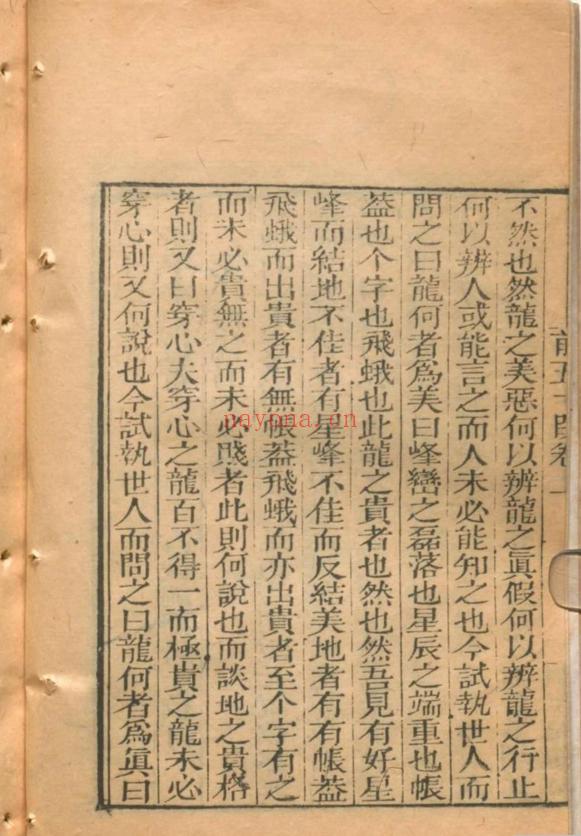 不然也然龍之美惡何以辨龍之眞假何以辨龍之行止
何以辨人或能言之而人未必能知之也今試執世人而
問之曰龍何者爲美曰峰巒之磊落也星辰之端重也帳
葢也个字也飛蛾也此龍之貴者也然也然吾見有好星
峰而結地不佳者有星峰不佳而反結美地者有有帳葢
飛蛾而出貴者有無帳葢飛蛾而亦出貴者至个字有之
而未必貴無之而未必賤者此則何說也而談地之貴格
者則又曰穿心夫穿心之龍百不得一而極貴之龍未必
穿心則又何說也今試執世人而問之曰龍何者爲眞曰
nayona.cn